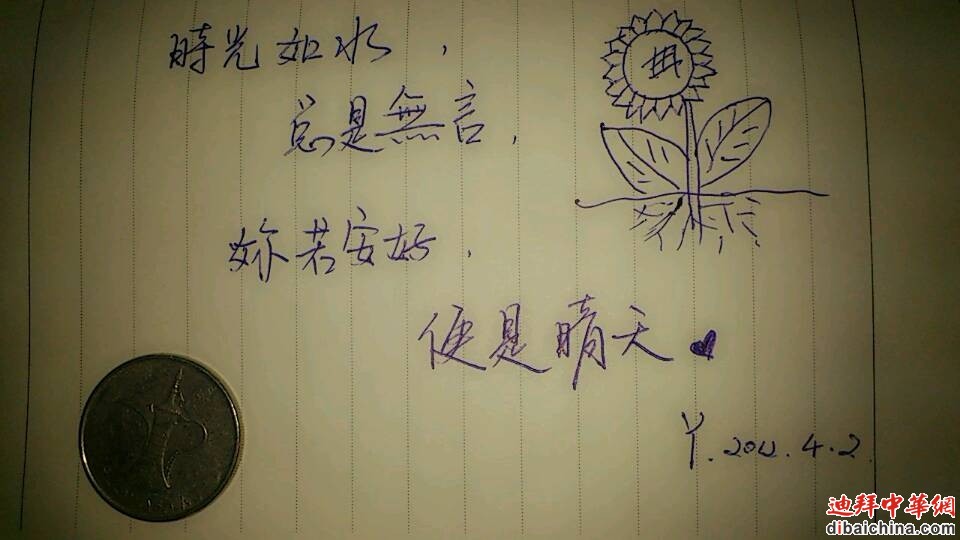 時光如水，
总是無言．
妳若安好．
便是晴天．
丫.2012.4.2.
迪拜中華網
dibaichina.com